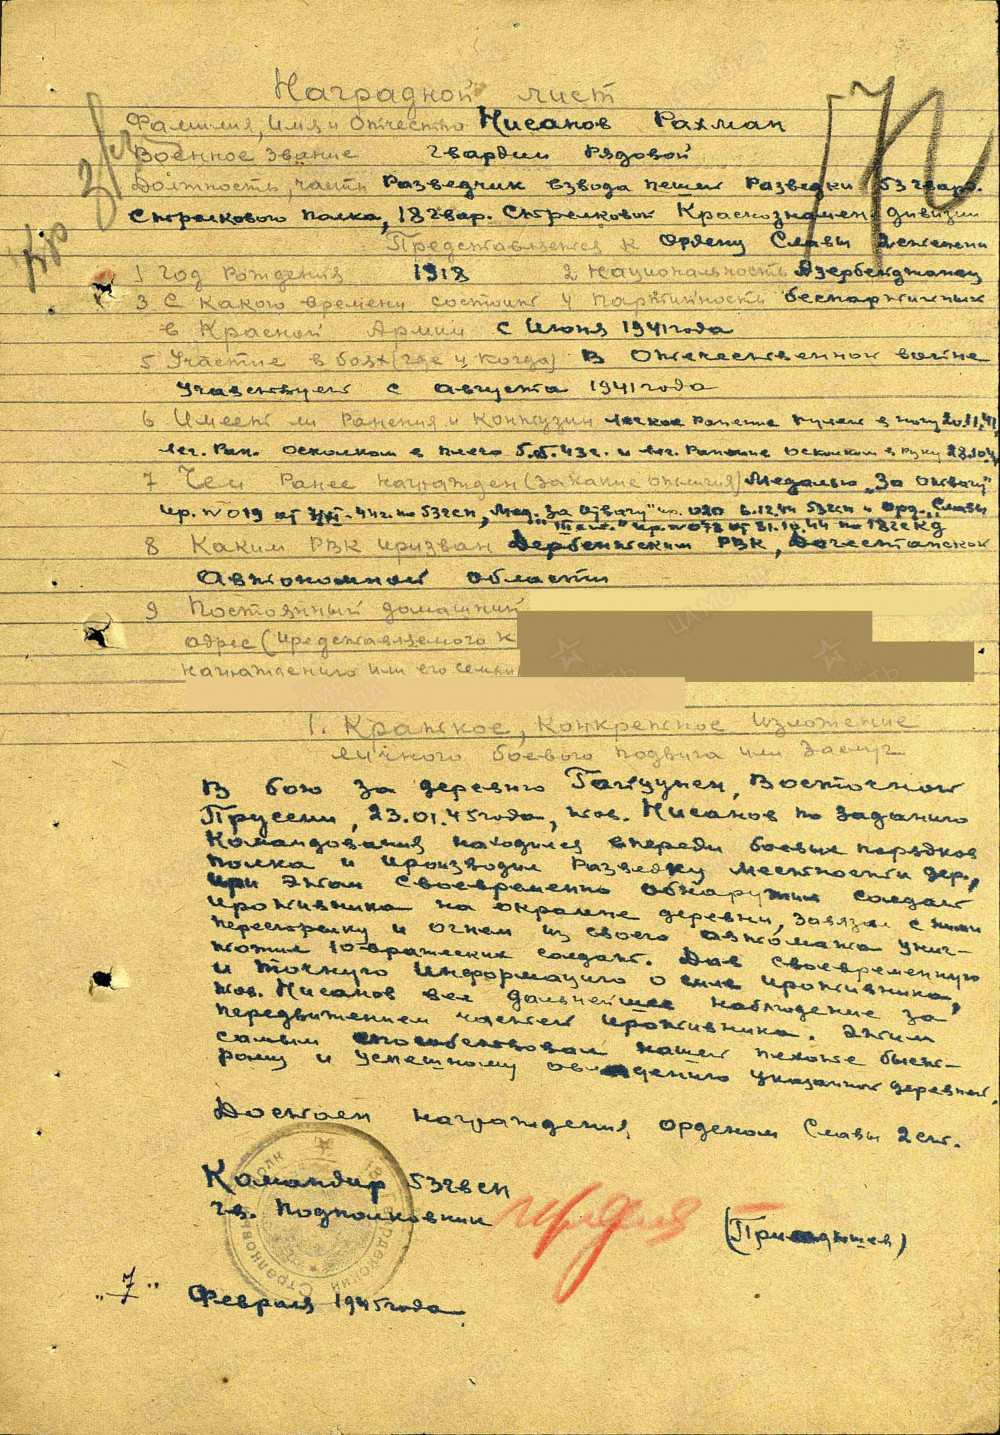 Наградной лист
Фамилия, Имя и Отчество Нисанов Рахман
Военное звание Гвардии Рядовой
Должность, часть Разведчик взвода пешей Разведки 53 гвард.
Стрелкового полка, 18 гвар. Стрелковой Краснознамен. дивизии
Представляется к Ордену Славы 2 степени
1 Год Рождения 1918 2 Национальность Азербейджанец
3 С какого времени состоит 4 Партийность беспартийный
в Красной Армии с Июня 1941 года
5 Участие в боях (где и когда) В Отечественной войне
участвует с Августа 1941 года
6 Имеет ли Ранения и Контузии легкое ранение пулей в ногу
лег. ран. осколком в плечо и лег. ранение осколком в руку
7 Чем Ранее награжден (за какие отличия) Медалью "За отвагу"
пр. № 019 от 44 г. по 53 гсп, Мед. "За отвагу" пр. 020 6.12.44 53 гсп и орд. "Славы
III ст." пр. № 072 от 31.10.44 по 18 гскд
8 Каким РВК призван Дербентским РВК, Дагестанской
Автономной области
9 Постоянный домашний
адрес (представляемого к
награждению или его семьи
1. Краткое, конкретное изложение
личного боевого подвига или заслуг
В бою за деревню Восточной
Пруссии, 23.01.45 года, тов. Нисанов по заданию
командования находился впереди боевых порядков
полка и производил Разведку местности дер.,
при этом своевременно обнаружил солдат
противника на окраине деревни, завязал с ними
перестрелку и огнем из своего автомата унич-
тожил 10 вражеских солдат. Дав своевременную
и точную информацию о силе противника,
тов. Нисанов вел дальнейшее наблюдение за
передвижением частей противника. Этим
самым способствовал нашей пехоте быст-
рому и успешному овладению указанной деревней.
Достоен награждения орденом Славы 2 ст.
Командир 53 гвсп
гв. Подполковник
"7" Февраля 1945 года